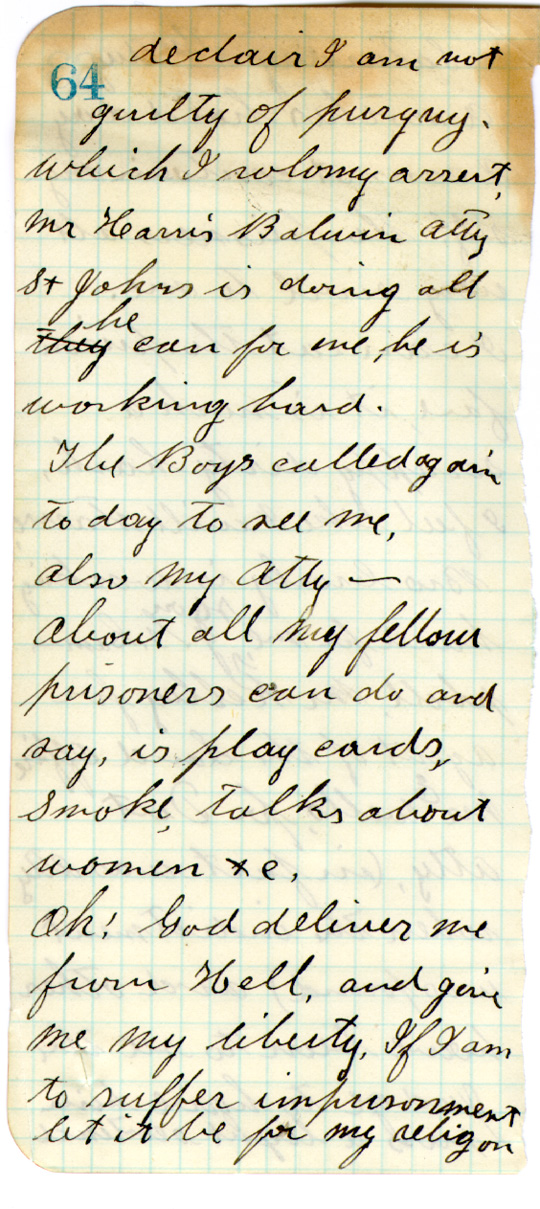 64
declair I am not
guilty of purguy.
which I my arrest,
Mr Harris Balwin Atty
St Johns is doing all
they he can for me, he is
working hard.
The Boys called again
to day to see me,
also my Atty —
About all my fellow
prisoners can do and
say, is play cards,
Smoke, talks about
women &c,
Oh! God deliver me
from Hell, and give
me my liberty, If I am
to suffer impurisonment
let it be for my religon